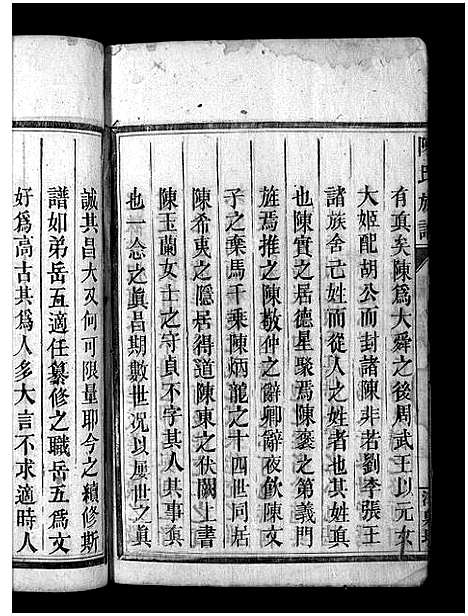 氏族譜
有眞矣陳爲大舜之後周武王以元女
大姬配胡公而封諸陳非若劉李張王
諸族舍己姓而從人之姓者也其姓眞
也陳寔之居德星聚焉陳褒之第義門
旌焉推之陳敬仲之辭卿辭夜飲陳文
子之棄馬千乘陳炳龍之十四世同居
陳希夷之隱居得道陳東之伏闕上書
陳玉蘭女士之守貞不字其人其事眞
也一念之眞昌期數世况以屢世之眞
誠其昌大又何可限量耶今之續修斯
譜如弟岳五適任纂修之職岳五爲文
好爲高古其爲人多大言不求適時人